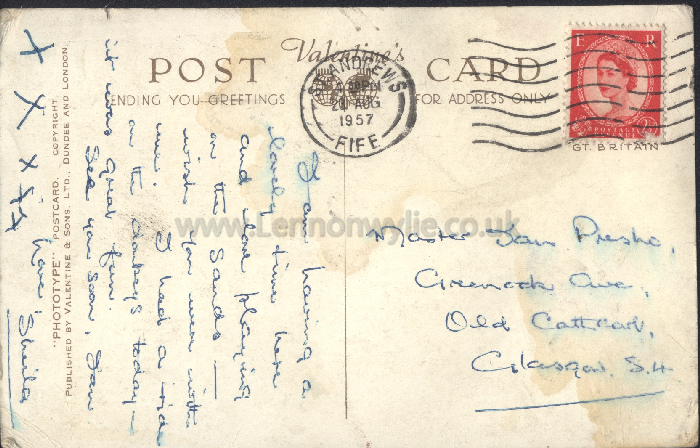 Valentine's
POST CARD
SENDING YOU GREETINGS
FOR ADDRESS ONLY
ST ANDREWS
20 AUG
1957
FIFE
E R
POSTAGE
GT. BRITAIN
"PHOTOTYPE" POSTCARD. COPYRIGHT.
PUBLISHED BY VALENTINE & SONS, LTD., DUNDEE AND LONDON.
I am having a
lovely time here
and love playing
on the Sands —
wish you were with
me. I had a ride
on the donkeys today —
it was great fun.
See you soon, Ian
love Sheila
X X X X X
www.Lennonwylie.co.uk
Master Ian
Greenock Ave,
Old Cathcart,
Glasgow. S.4.